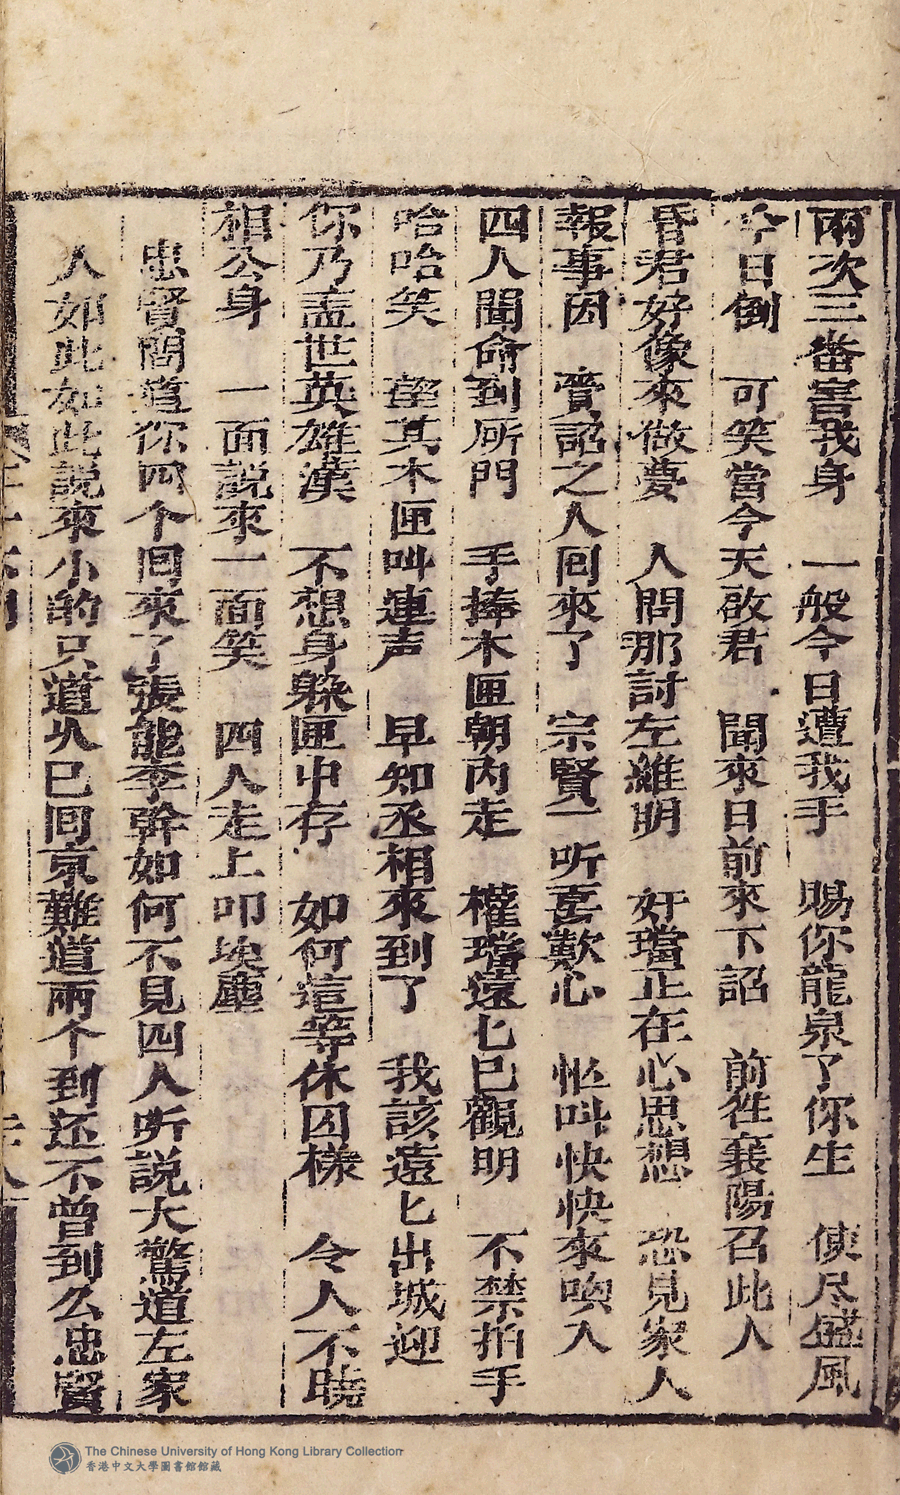 兩次三番害我身　一般今日遭我手　賜你龍泉了你生　使尽盛風
今日倒　可笑當今天啟君　聞來日前來下詔　前徃襄陽召此人
昏君好像來做夢　人問那討左維明　奸璫正在心思想　恐見家人
報事因　賫詔之人囘來了　宗賢一听喜歡心　怄叫快快來喚入
四人聞命到所門　手捧木匣朝内走　權璫遠匕已觀明　不禁拍手
哈哈笑　望其木匣叫連声　早知丞相來到了　我該遠匕出城迎
你乃盖世英雄漢　不想身躲匣中存　如何這等休囚樣　令人不曉
相公身　一面說來一面笑　四人走上叩埃塵
忠賢問道你四个囘來了張能李幹如何不見四人听說大驚道左家
人如此如此說來小的只道从已囘京難道兩个到还不曾到么忠賢
The Chinese University of Hong Kong Library Collection
香港中文大學圖書館館藏